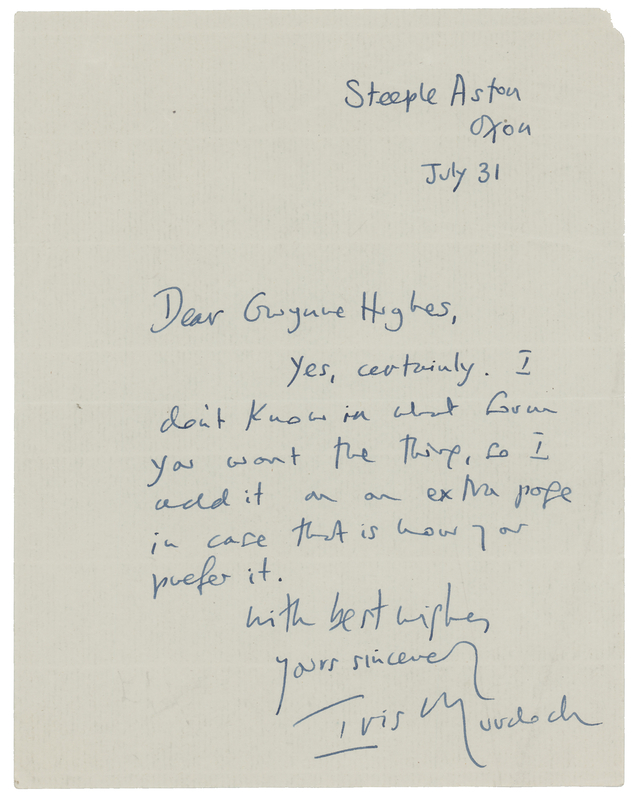 Steeple Aston
Oxon
July 31
Dear Gwynne Hughes,
Yes, certainly. I
don't know in what form
you want the thing, so I
add it on an extra page
in case that is how you
prefer it.
with best wishes
yours sincerely
Iris Murdoch